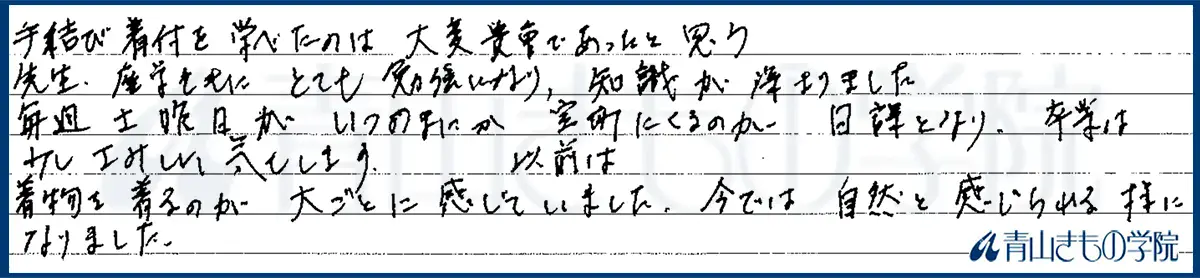 手結び着付を学べたのは 大変貴重であったと思う
先生、座学ともに とても勉強になり、知識が深まりました
毎週土曜日が いつのまにか 室町にくるのが 日課となり、卒業は
少しさみしい気もします。 以前は
着物を着るのが 大ごとに感じていました。今では 自然と感じられる様に
なりました。
青山きもの学院